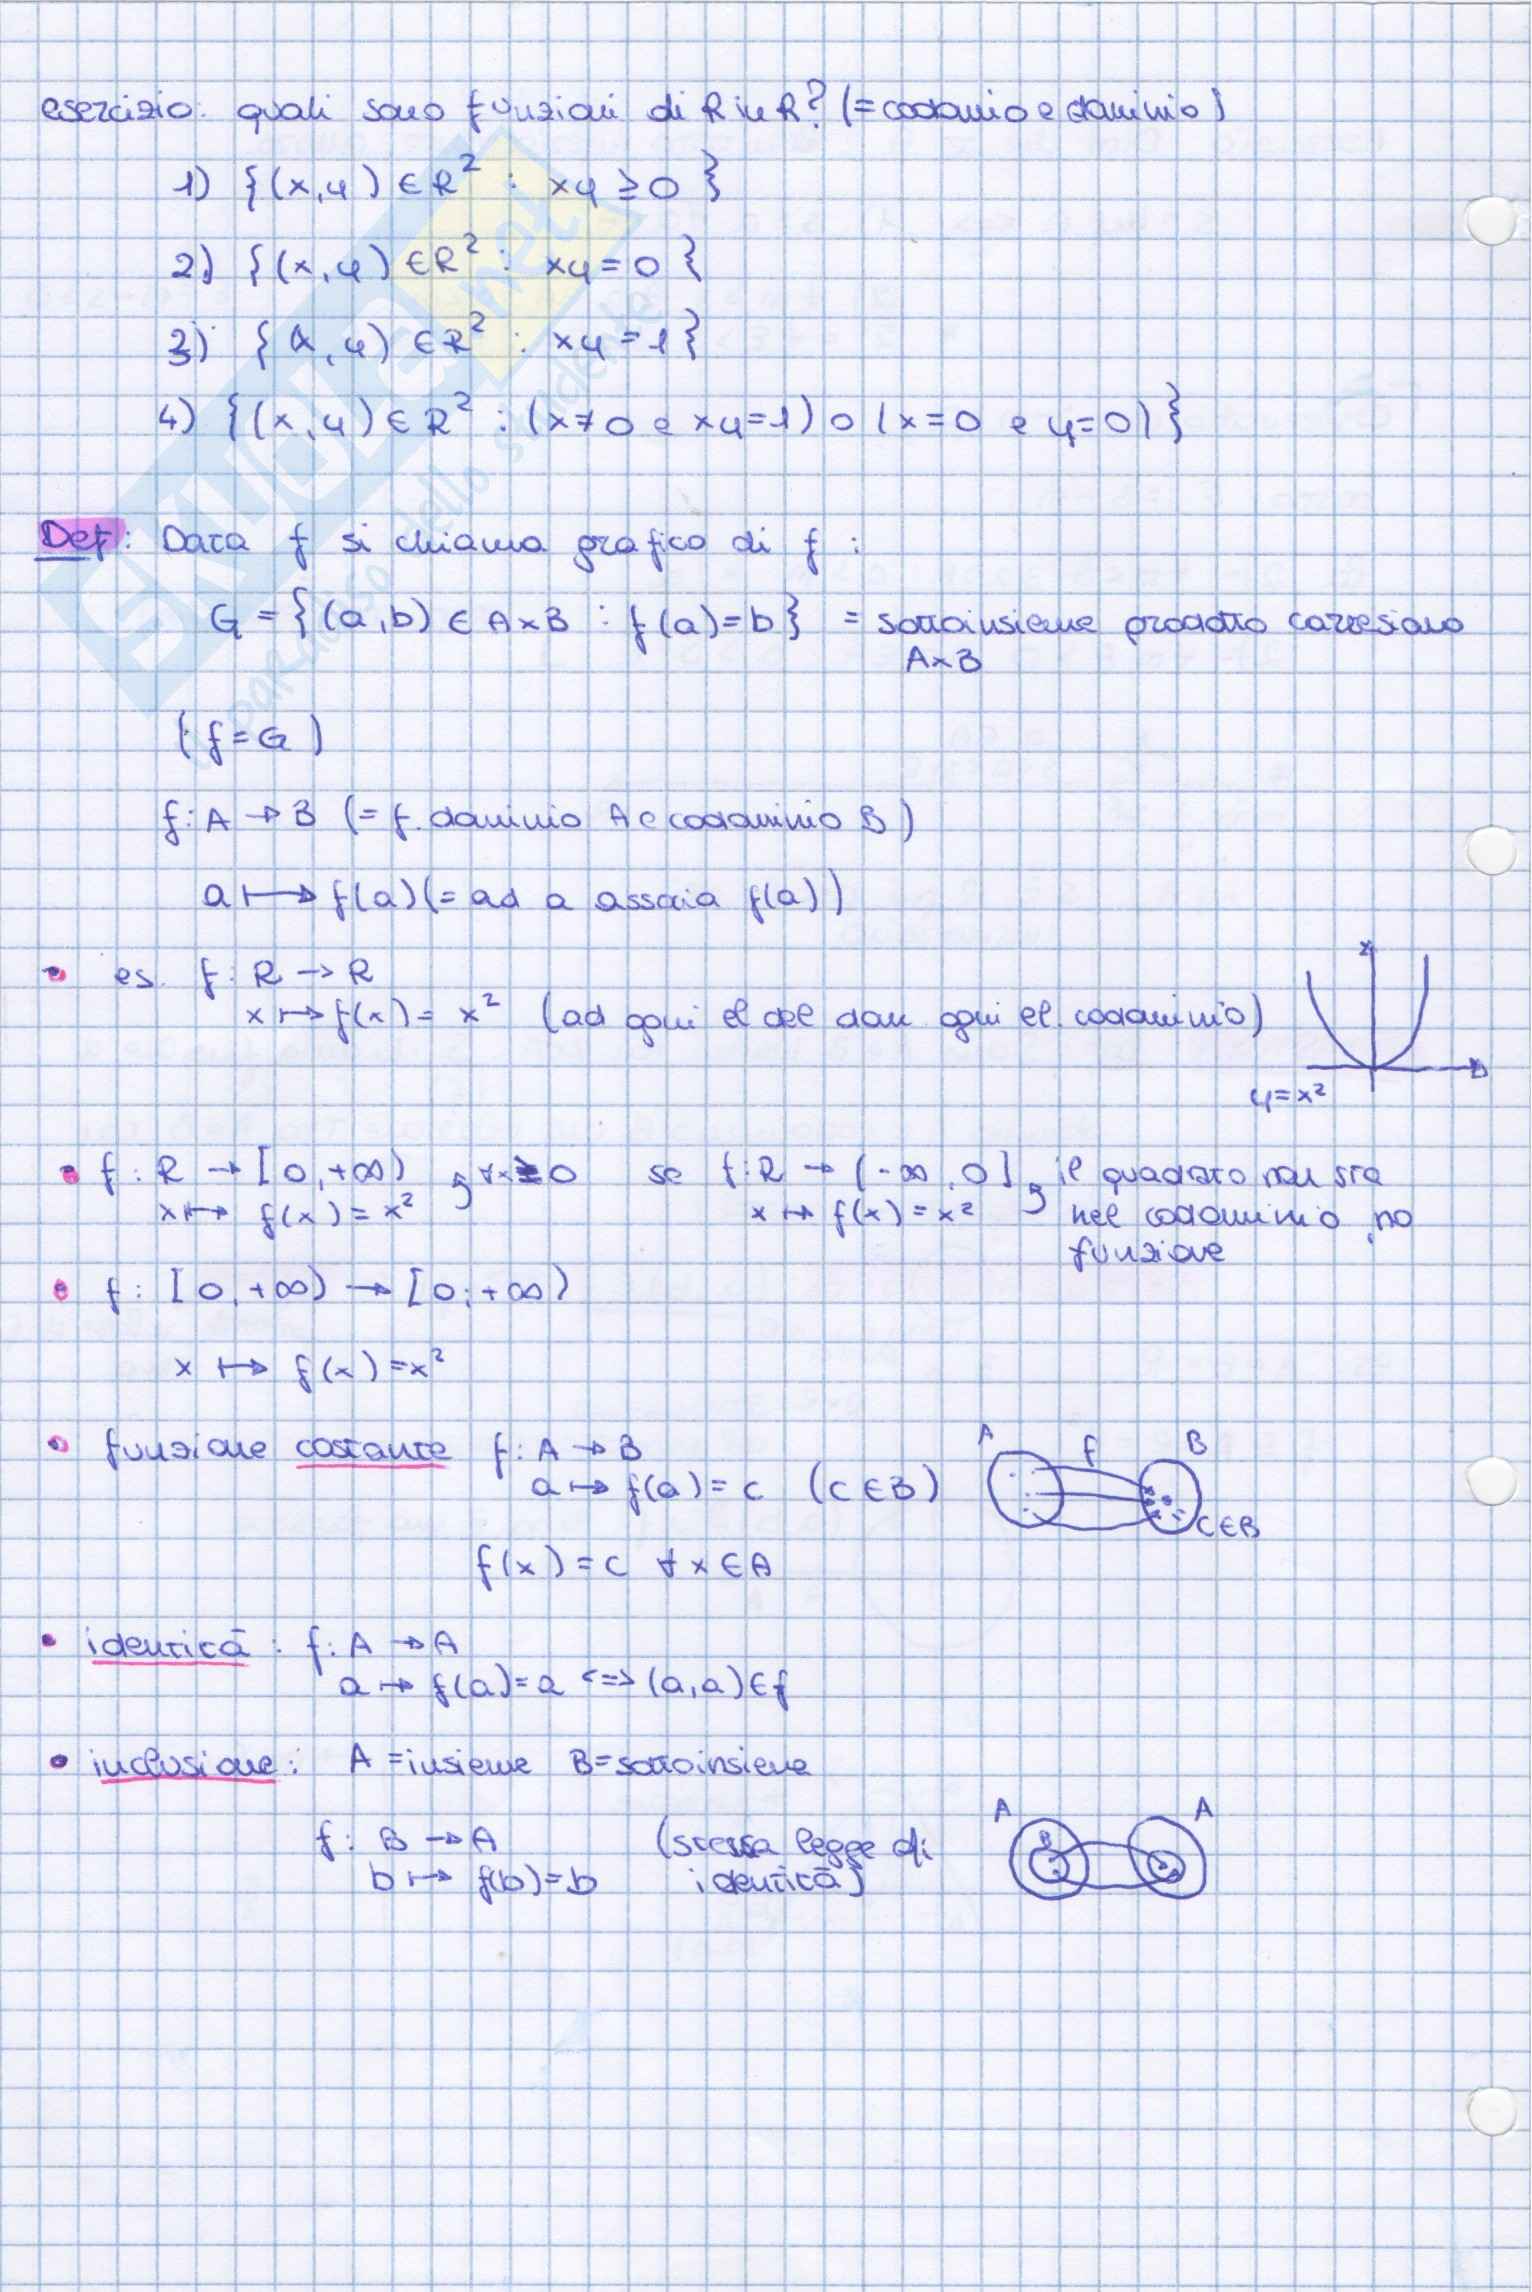 esercizio: quali sono funzioni di R in R? (= codominio e dominio)
1) {(x,y) ∈ R² : xy ≥ 0 }
2) {(x,y) ∈ R² : xy = 0 }
3) {(x,y) ∈ R² : xy = 1}
4) {(x,y) ∈ R² : (x≠0 e xy=1) o (x=0 e y=0)}
Def: Data f si chiama grafico di f :
G = {(a,b) ∈ A×B : f(a)=b} = sottoinsieme prodotto cartesiano
A×B
(f=G)
f: A → B (= f. dominio A e codominio B)
a ↦ f(a) (= ad a associa f(a))
• es. f: R → R
x ↦ f(x) = x² (ad ogni el del dom ogni el. codominio)
y=x²
• f: R → [0,+∞) , ∀x≥0 se f: R → (-∞,0] , il quadrato non sta
x ↦ f(x) = x² x ↦ f(x) = x² nel codominio, no
funzione
• f: [0,+∞) → [0;+∞)
x ↦ f(x) = x²
• funzione costante f: A → B
a ↦ f(a) = c (c ∈ B)
A f B
c∈B
f(x) = c ∀ x ∈ A
• identità : f: A → A
a ↦ f(a)=a <=> (a,a) ∈ f
• inclusione: A = insieme B = sottoinsieme
f: B → A (stessa legge di
b ↦ f(b)=b identità)
A A
B
SKUOLA.net
il paradiso dello studente